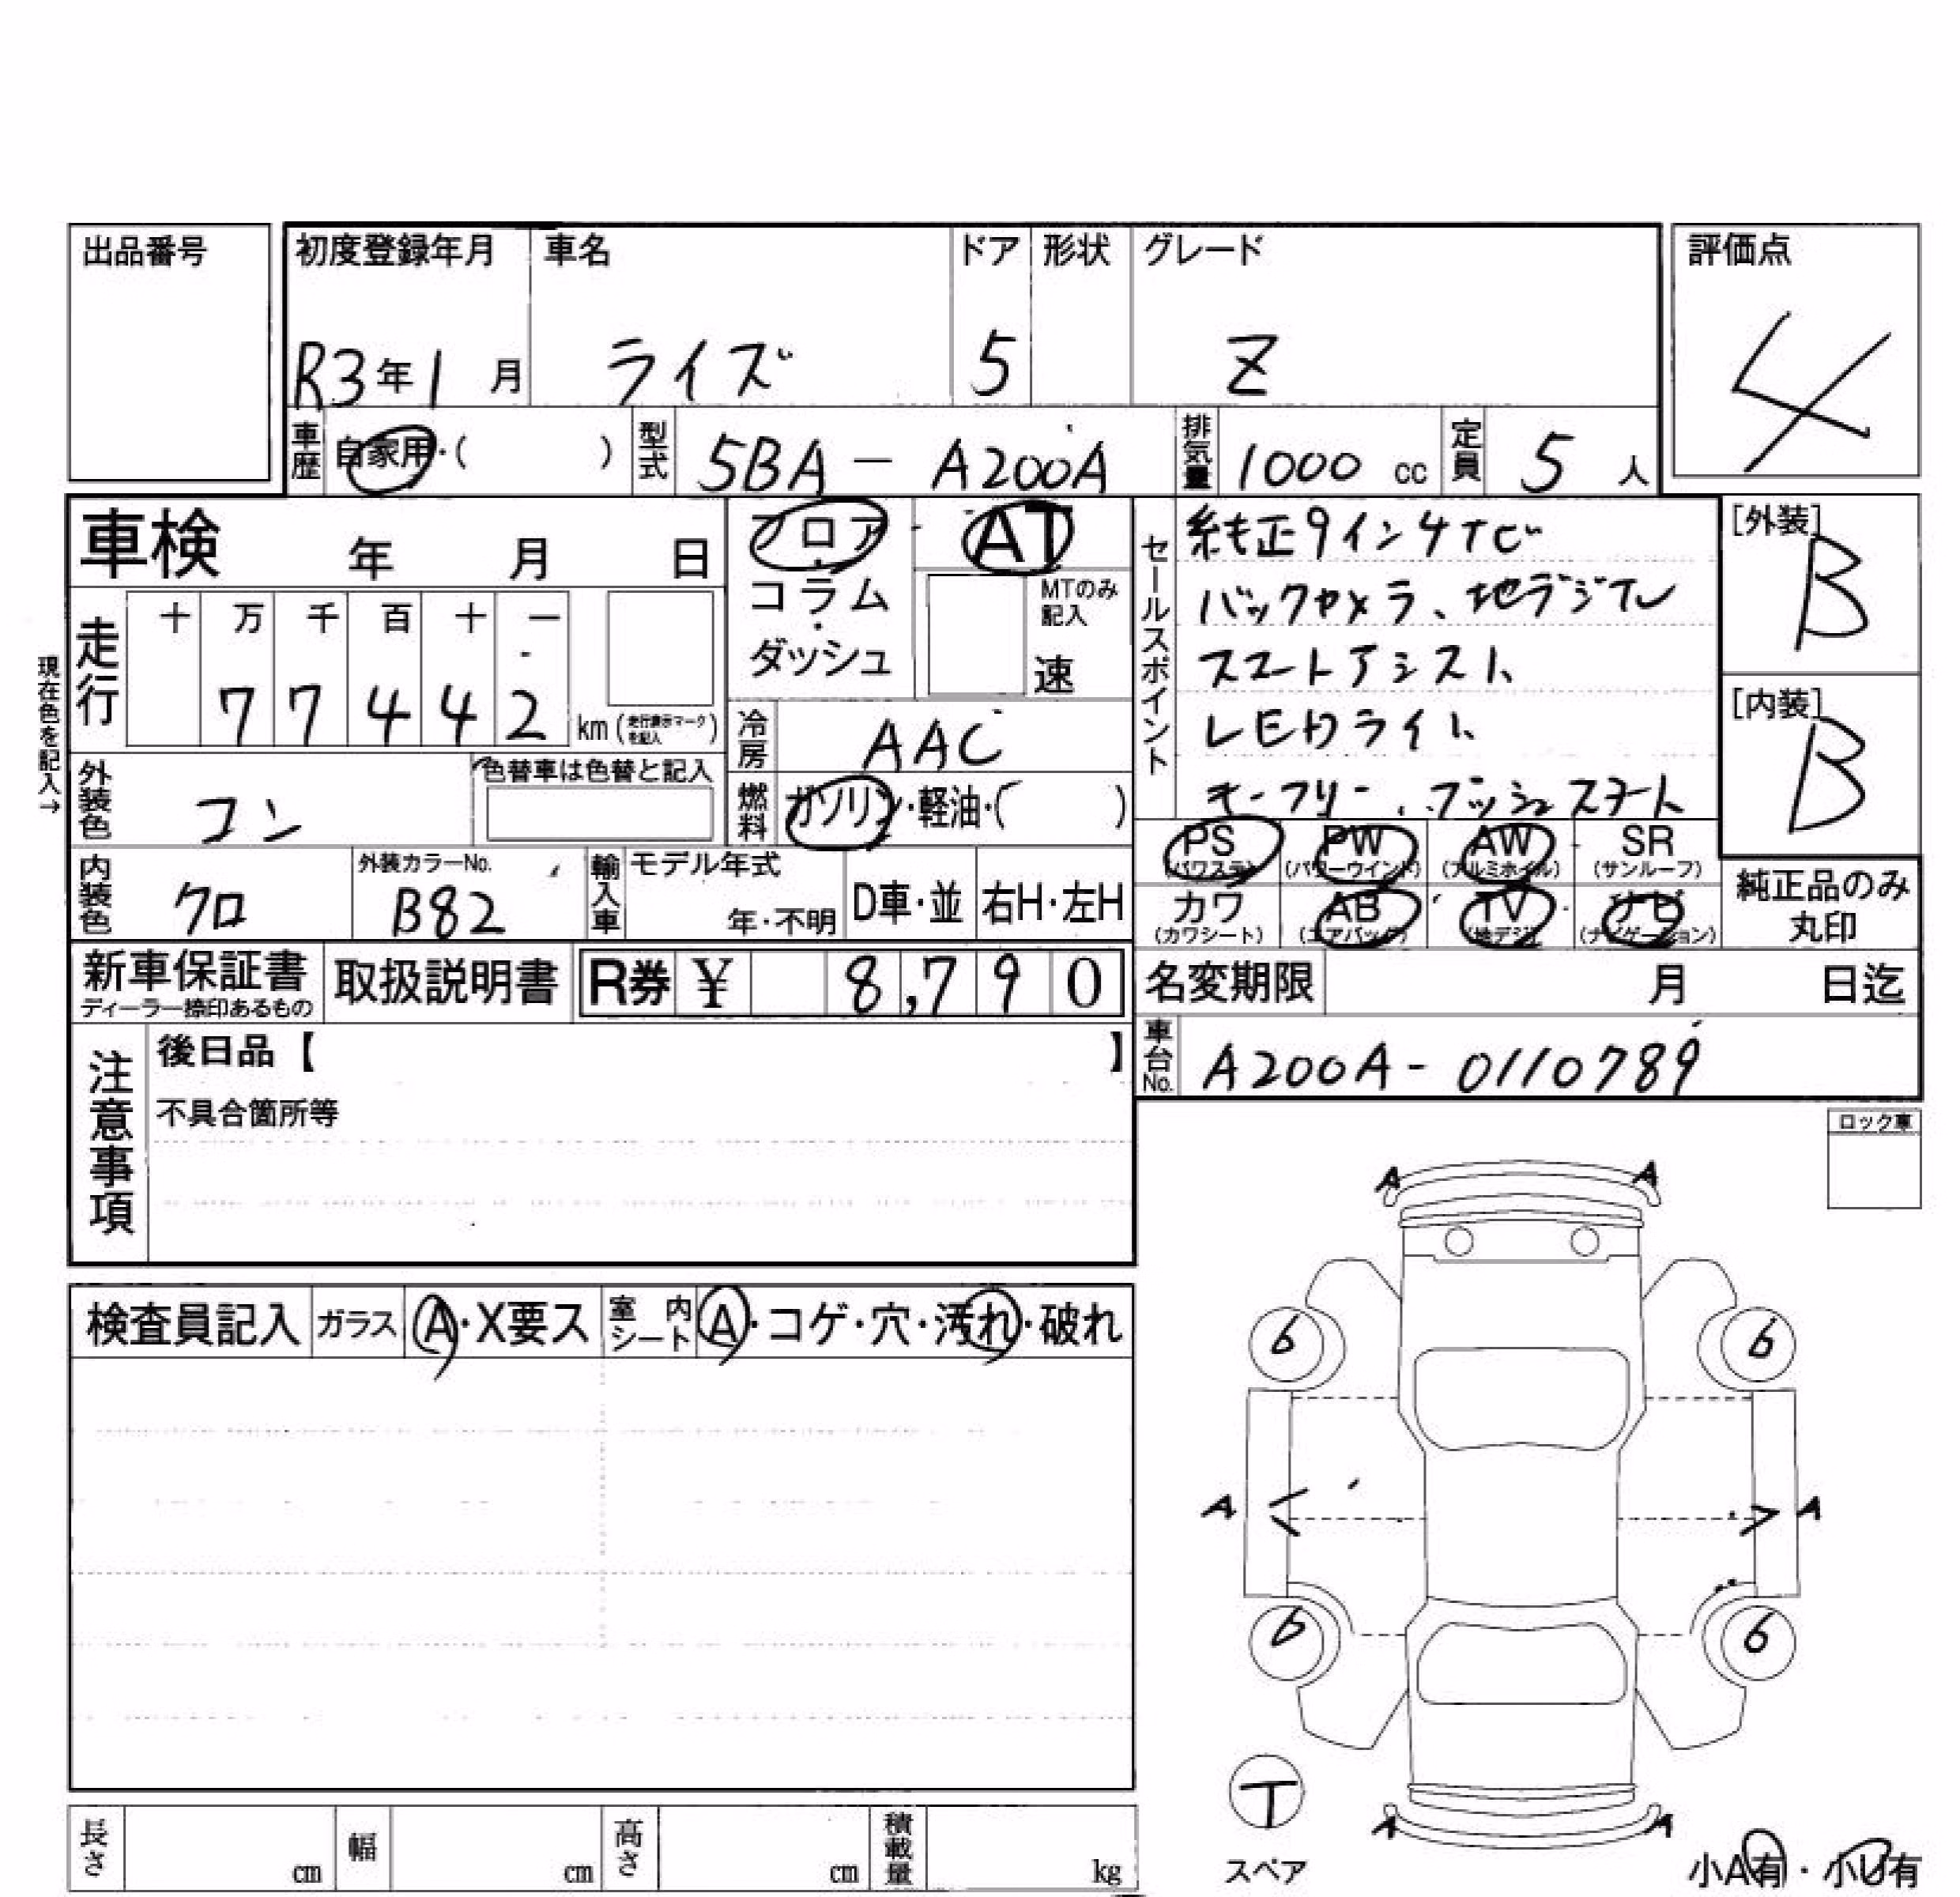 出品番号
初度登録年月 車名 ドア 形状 グレード 評価点
R3年1月 ライズ 5 Z 4
車歴 自家用・( ) 型式 5BA - A200A 排気量 1000 cc 定員 5 人
車検 年 月 日
フロア・コラム・ダッシュ
AT
MTのみ記入
速
セールスポイント
純正9インチナビ
バックカメラ、地デジTV
スマートアシスト
LEDライト
キーフリー、プッシュスタート
[外装]
B
[内装]
B
現在色を記入→
走行
十 万 千 百 十 一
7 7 4 4 2 km (走行表示マークを記入)
冷房 AAC
外装色 コン 色替車は色替と記入
燃料 ガソリン・軽油・( )
PS PW AW SR
(パワステ) (パワーウインド) (アルミホイル) (サンルーフ)
カワ AB TV ナビ
(カワシート) (エアバッグ) (地デジ) (ナビゲーション)
純正品のみ
丸印
内装色 クロ 外装カラーNo. B82 輸入車 モデル年式 年・不明 D車・並 右H・左H
新車保証書 取扱説明書 R券 ¥ 8,790 名変期限 月 日迄
ディーラー捺印あるもの
車台No. A200A - 0110789
注意事項
後日品【 】
不具合箇所等
ロック車
A A
検査員記入 ガラス A・X要ス 室内シート A・コゲ・穴・汚れ・破れ
6 6
A A
6 6
T
スペア
A A
小A有・小U有
長さ cm 幅 cm 高さ cm 積載量 kg